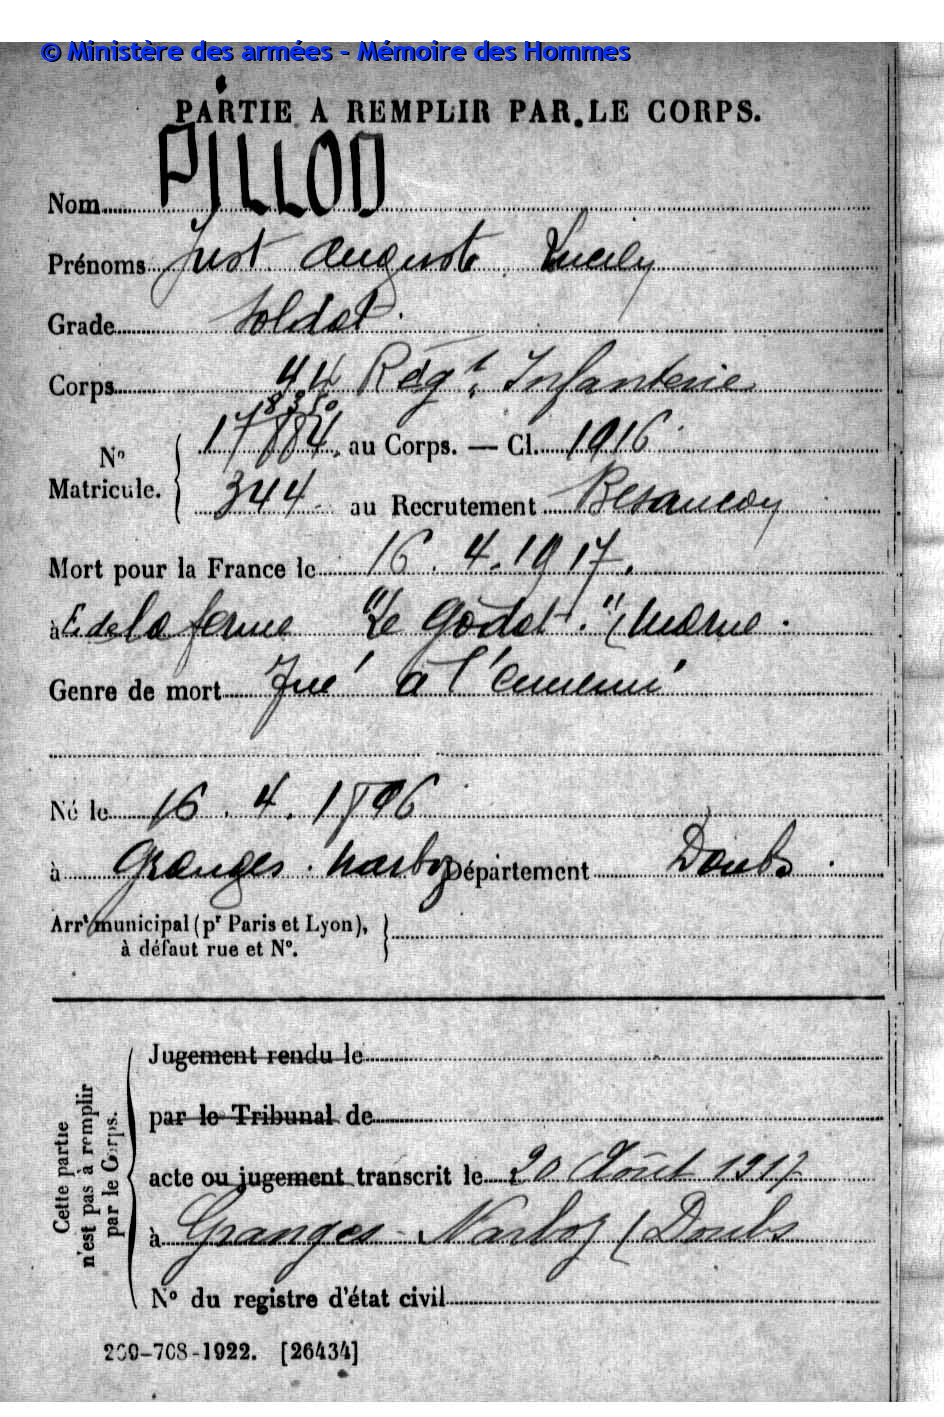 © Ministère des armées - Mémoire des Hommes
PARTIE A REMPLIR PAR LE CORPS.
Nom PILLOD
Prénoms Just Auguste Lucily
Grade Soldat
Corps 44 Régt Infanterie
18310
17884 au Corps. — Cl. 1916
No
Matricule.
344 au Recrutement Besançon
Mort pour la France le 16.4.1917.
à E. de la ferme "Le Godat" (Marne.
Genre de mort Tué à l'ennemi
Né le 16.4.1896
à Granges. Narboz Département Doubs.
Arrt municipal (pr Paris et Lyon),
à défaut rue et No.
Cette partie
n'est pas à remplir
par le Corps.
Jugement rendu le
par le Tribunal de
acte ou jugement transcrit le 20 Août 1917
à Granges-Narboz (Doubs
No du registre d'état civil
260-708-1922. [26434]